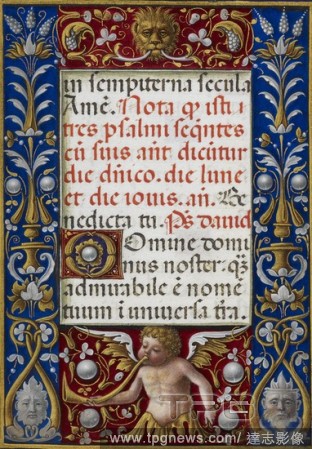 in sempiterna secula
Amē. Nota qꝫ isti
tres psalmi seq̄ntes
cū suis añt dicūtur
die dñico. die lune
et die iouis. añ. Be
nedicta tu. Ps̄ dauid
Domine domi
nus noster. q̄ꝫ
admirabile ē nome
tuum ī uniuersa tr̄a.
TPG
www.tpgnews.com/ 達志影像